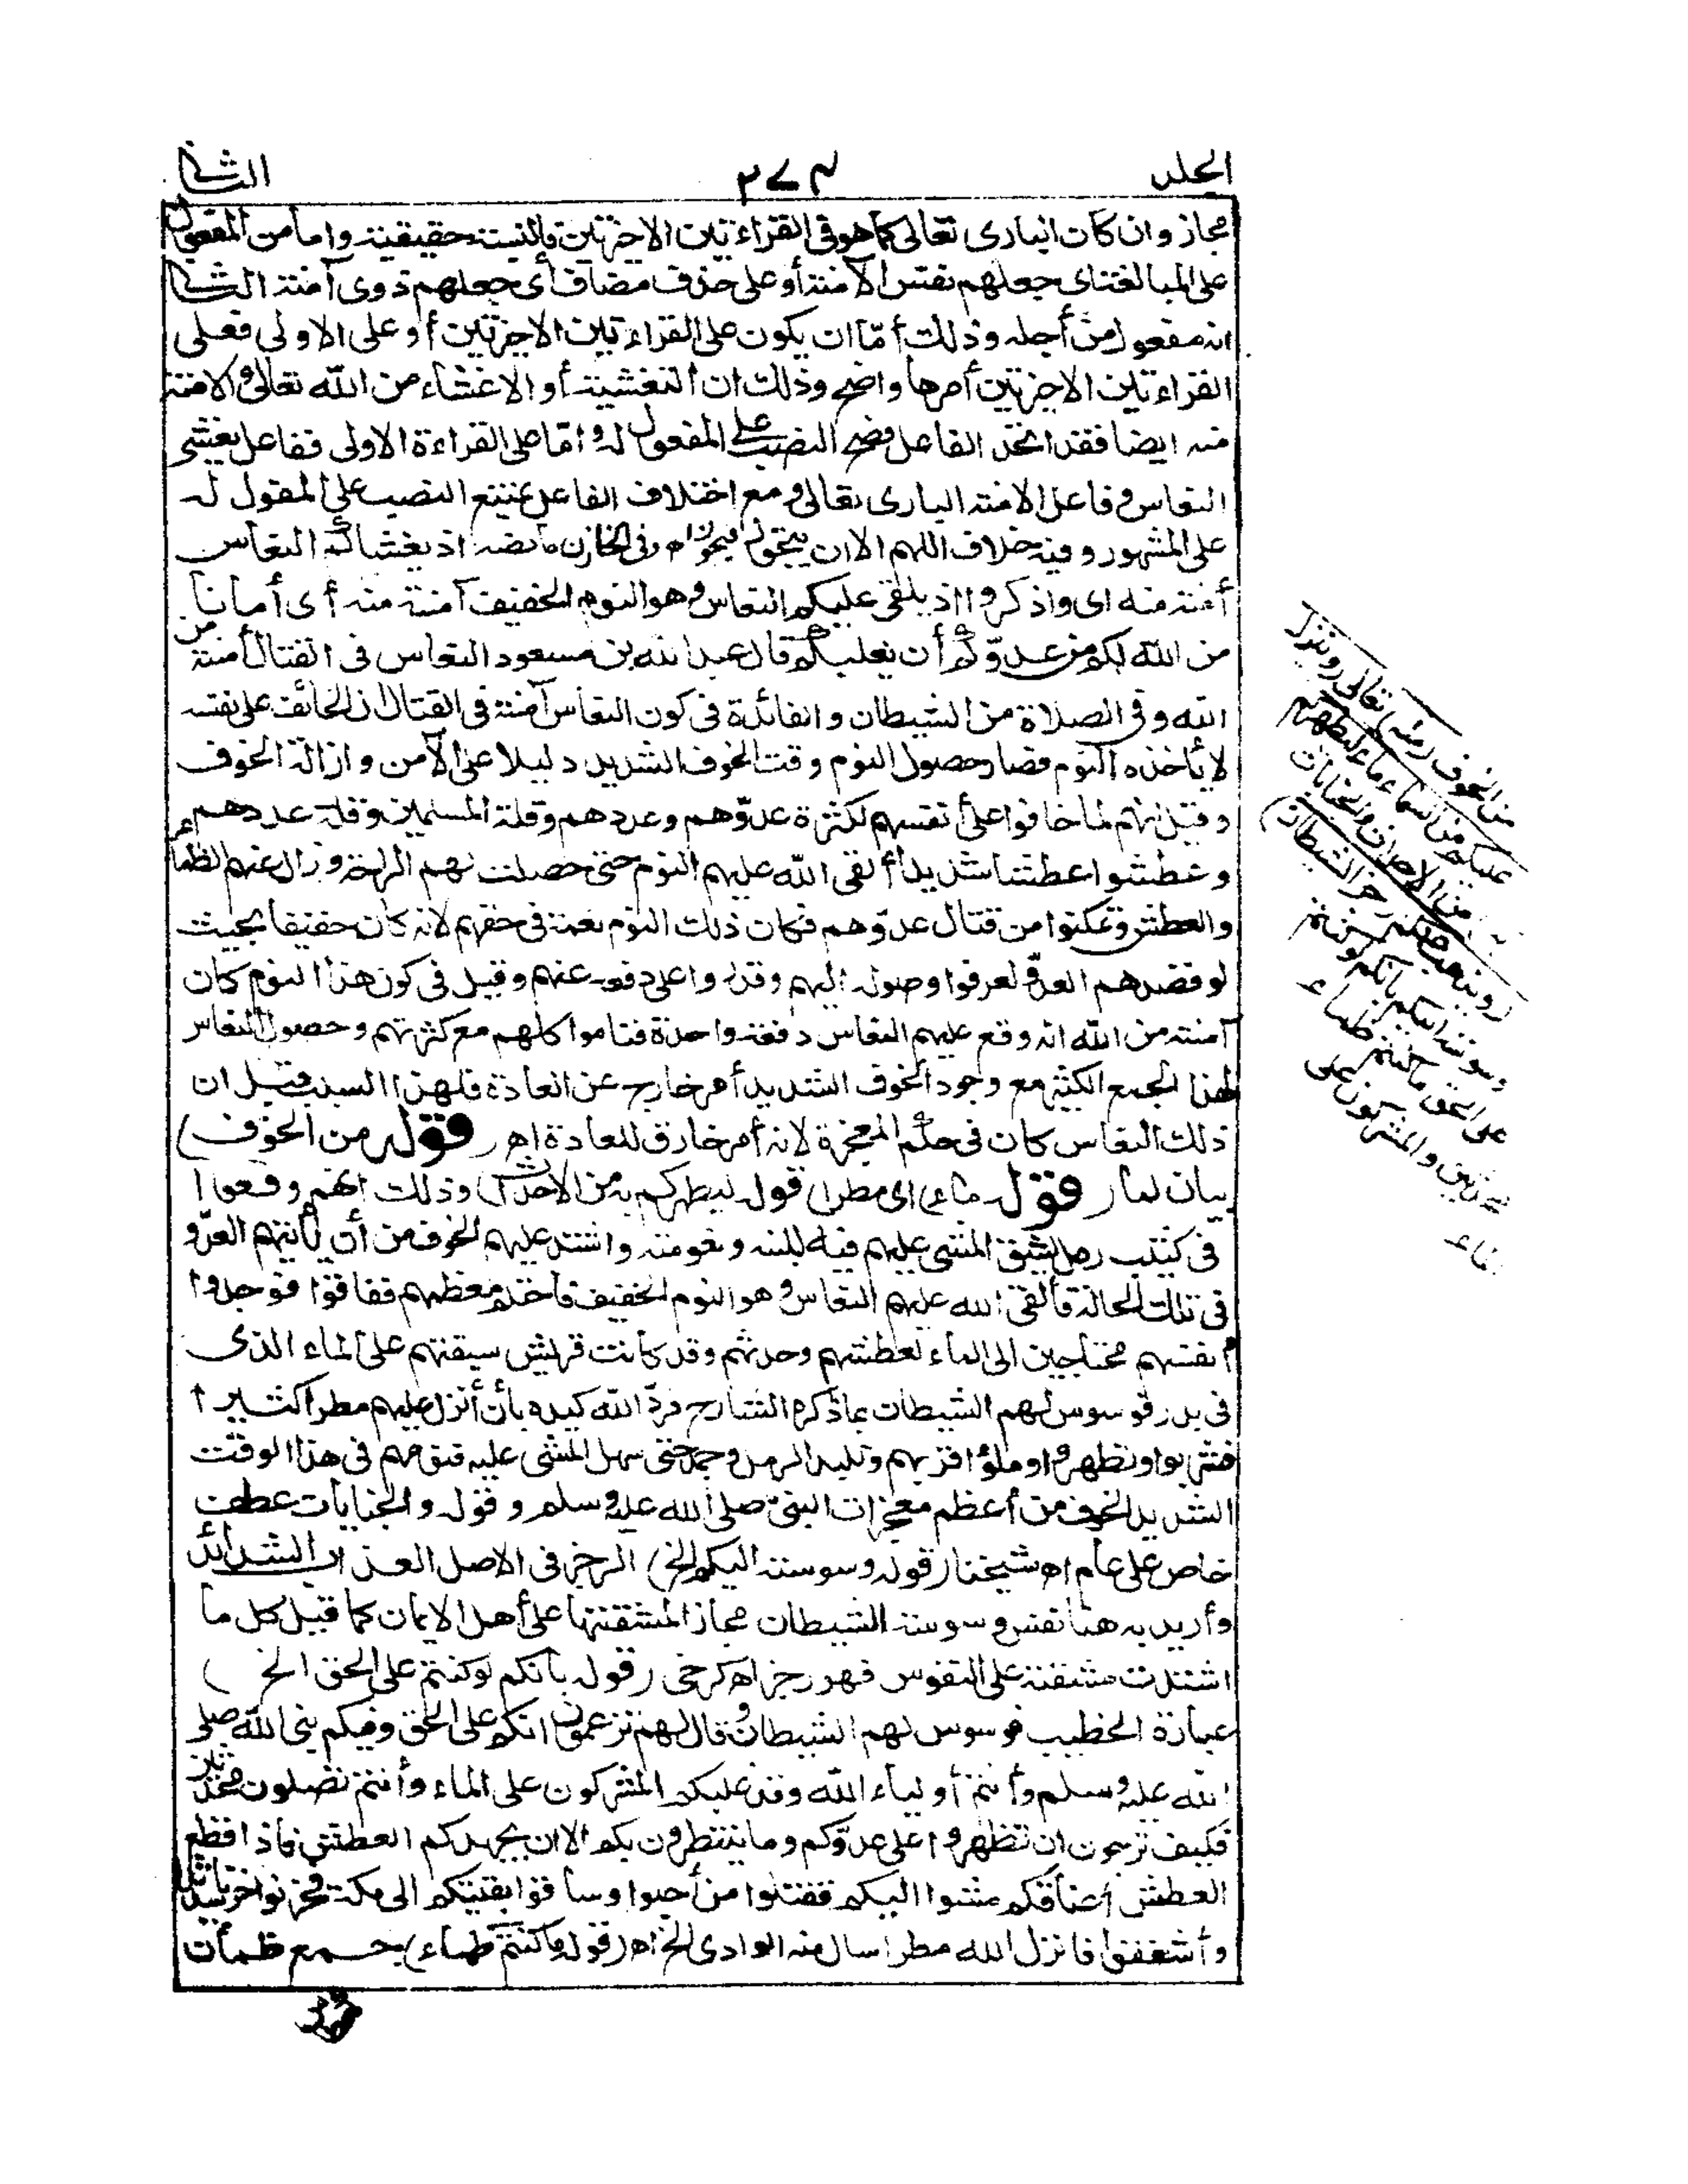 الجلد ٢٧٤ الثانی
مجاز وان كان البارى تعالى كما هو فى القراءتين الاخيرتين فالنسبة حقيقية واما من المفعول
على المبالغة اى جعلهم نفس الامنة أو على حذف مضاف أى جعلهم ذوى أمنة الثانی
انه مفعول من أجله وذلك أمّا ان يكون على القراءتين الاخيرتين أو على الاولى فعلى
القراءتين الاخيرتين أمرها واضح وذلك ان التغشية أو الاغشاء من الله تعالى والامنة
منه ايضا فقد اتحد الفاعل فصح النصب على المفعول له واما على القراءة الاولى ففاعل يغشى
النعاس وفاعل الامنة البارى تعالى ومع اختلاف الفاعل يمتنع النصب على المفعول له
على المشهور وفيه خلاف اللهم الا ان يتجوز فيجوز اه وفى الخازن ما نصه اذ يغشاكم النعاس
أمنة منه اى واذكروا اذ يلقى عليكم النعاس وهو النوم الخفيف أمنة منه أى أمانا
من الله لكم من عدوّكم أن يغلبكم قال عبد الله بن مسعود النعاس فى القتال أمنة من
الله وفى الصلاة من الشيطان والفائدة فى كون النعاس أمنة فى القتال ان الخائف على نفسه
لا يأخذه النوم فصار حصول النوم وقت الخوف الشديد دليلا على الأمن وازالة الخوف
وقيل انهم لما خافوا على أنفسهم لكثرة عدوّهم وعددهم وقلة المسلمين وقلة عددهم
وعطشوا عطشا شديدا ألقى الله عليهم النوم حتى حصلت لهم الراحة وزال عنهم الظمأ
والعطش وتمكنوا من قتال عدوّهم فكان ذلك النوم نعمة فى حقهم لانه كان خفيفا بحيث
لو قصدهم العدوّ لعرفوا وصوله اليهم وقدروا على دفعه عنهم وقيل فى كون هذا النوم كان
أمنة من الله انه وقع عليهم النعاس دفعة واحدة فناموا كلهم مع كثرتهم وحصول النعاس
لهذا الجمع الكثير مع وجود الخوف الشديد أمر خارج عن العادة فلهذا السبب قيل ان
ذلك النعاس كان فى حكم المعجزة لانه أمر خارق للعادة اه (قوله من الخوف)
بيان لما (قوله ماء) اى مطرا (قوله ليطهركم به من الاحداث) وذلك انهم وقعوا
فى كثيب رمل يشق المشى عليهم فيه للينه ونعومته واشتد عليهم الخوف من أن يأتيهم العدوّ
فى تلك الحالة فألقى الله عليهم النعاس وهو النوم الخفيف فأخذ معظمهم ففاقوا فوجدوا
أنفسهم محتاجين الى الماء لعطشهم وحدثهم وقد كانت قريش سبقتهم على الماء الذى
فى بدر فوسوس لهم الشيطان بما ذكره الشارح فردّ الله كيده بأن أنزل عليهم مطرا كثيرا
فشربوا وتطهروا وملؤا قربهم وتلبد الرمل وجمد حتى سهل المشى عليه فنومهم فى هذا الوقت
الشديد الخوف من أعظم معجزات النبىّ صلى الله عليه وسلم وقوله والجنابات عطف
خاص على عام اه شيخنا (قوله وسوسته اليكم الخ) الرجز فى الاصل العذاب الشدائد
وأريد به هنا نفس وسوسة الشيطان مجازا لمشقتها على أهل الايمان كما قيل كل ما
اشتدت مشقته على النفوس فهو رجز اه كرخى (قوله بأنكم لو كنتم على الحق الخ)
عبارة الخطيب فوسوس لهم الشيطان وقال لهم تزعمون انكم على الحق وفيكم نبى الله صلى
الله عليه وسلم وأنتم أولياء الله وقد غلبكم المشركون على الماء وأنتم تصلون محدثين
فكيف ترجون ان تظهروا على عدوّكم وما ينتظرون بكم الا ان يجهدكم العطش فاذا قطع
العطش أعناقكم مشوا اليكم فقتلوا من أحبوا وساقوا بقيتكم الى مكة فحزنوا حزنا شديدا
وأشفقوا فانزل الله مطرا سال منه الوادى الخ اه (قوله ما كنتم ظماء) جمع ظمآن
من الخوف (منه) تعالى (وينزل
عليكم من السماء ماء ليطهركم
به) من الاحداث والجنابات
(ويذهب عنكم رجز الشيطان)
وسوسته اليكم بانكم لو كنتم
على الحق ما كنتم ظماء
محدثين والمشركون على
الماء